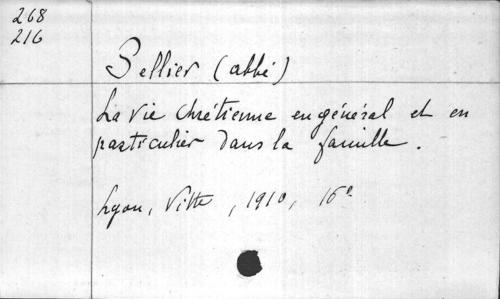 268
216
Sellier (abbé)
La vie chrétienne en général et en
particulier dans la famille.
Lyon, Vitte, 1910, 16°